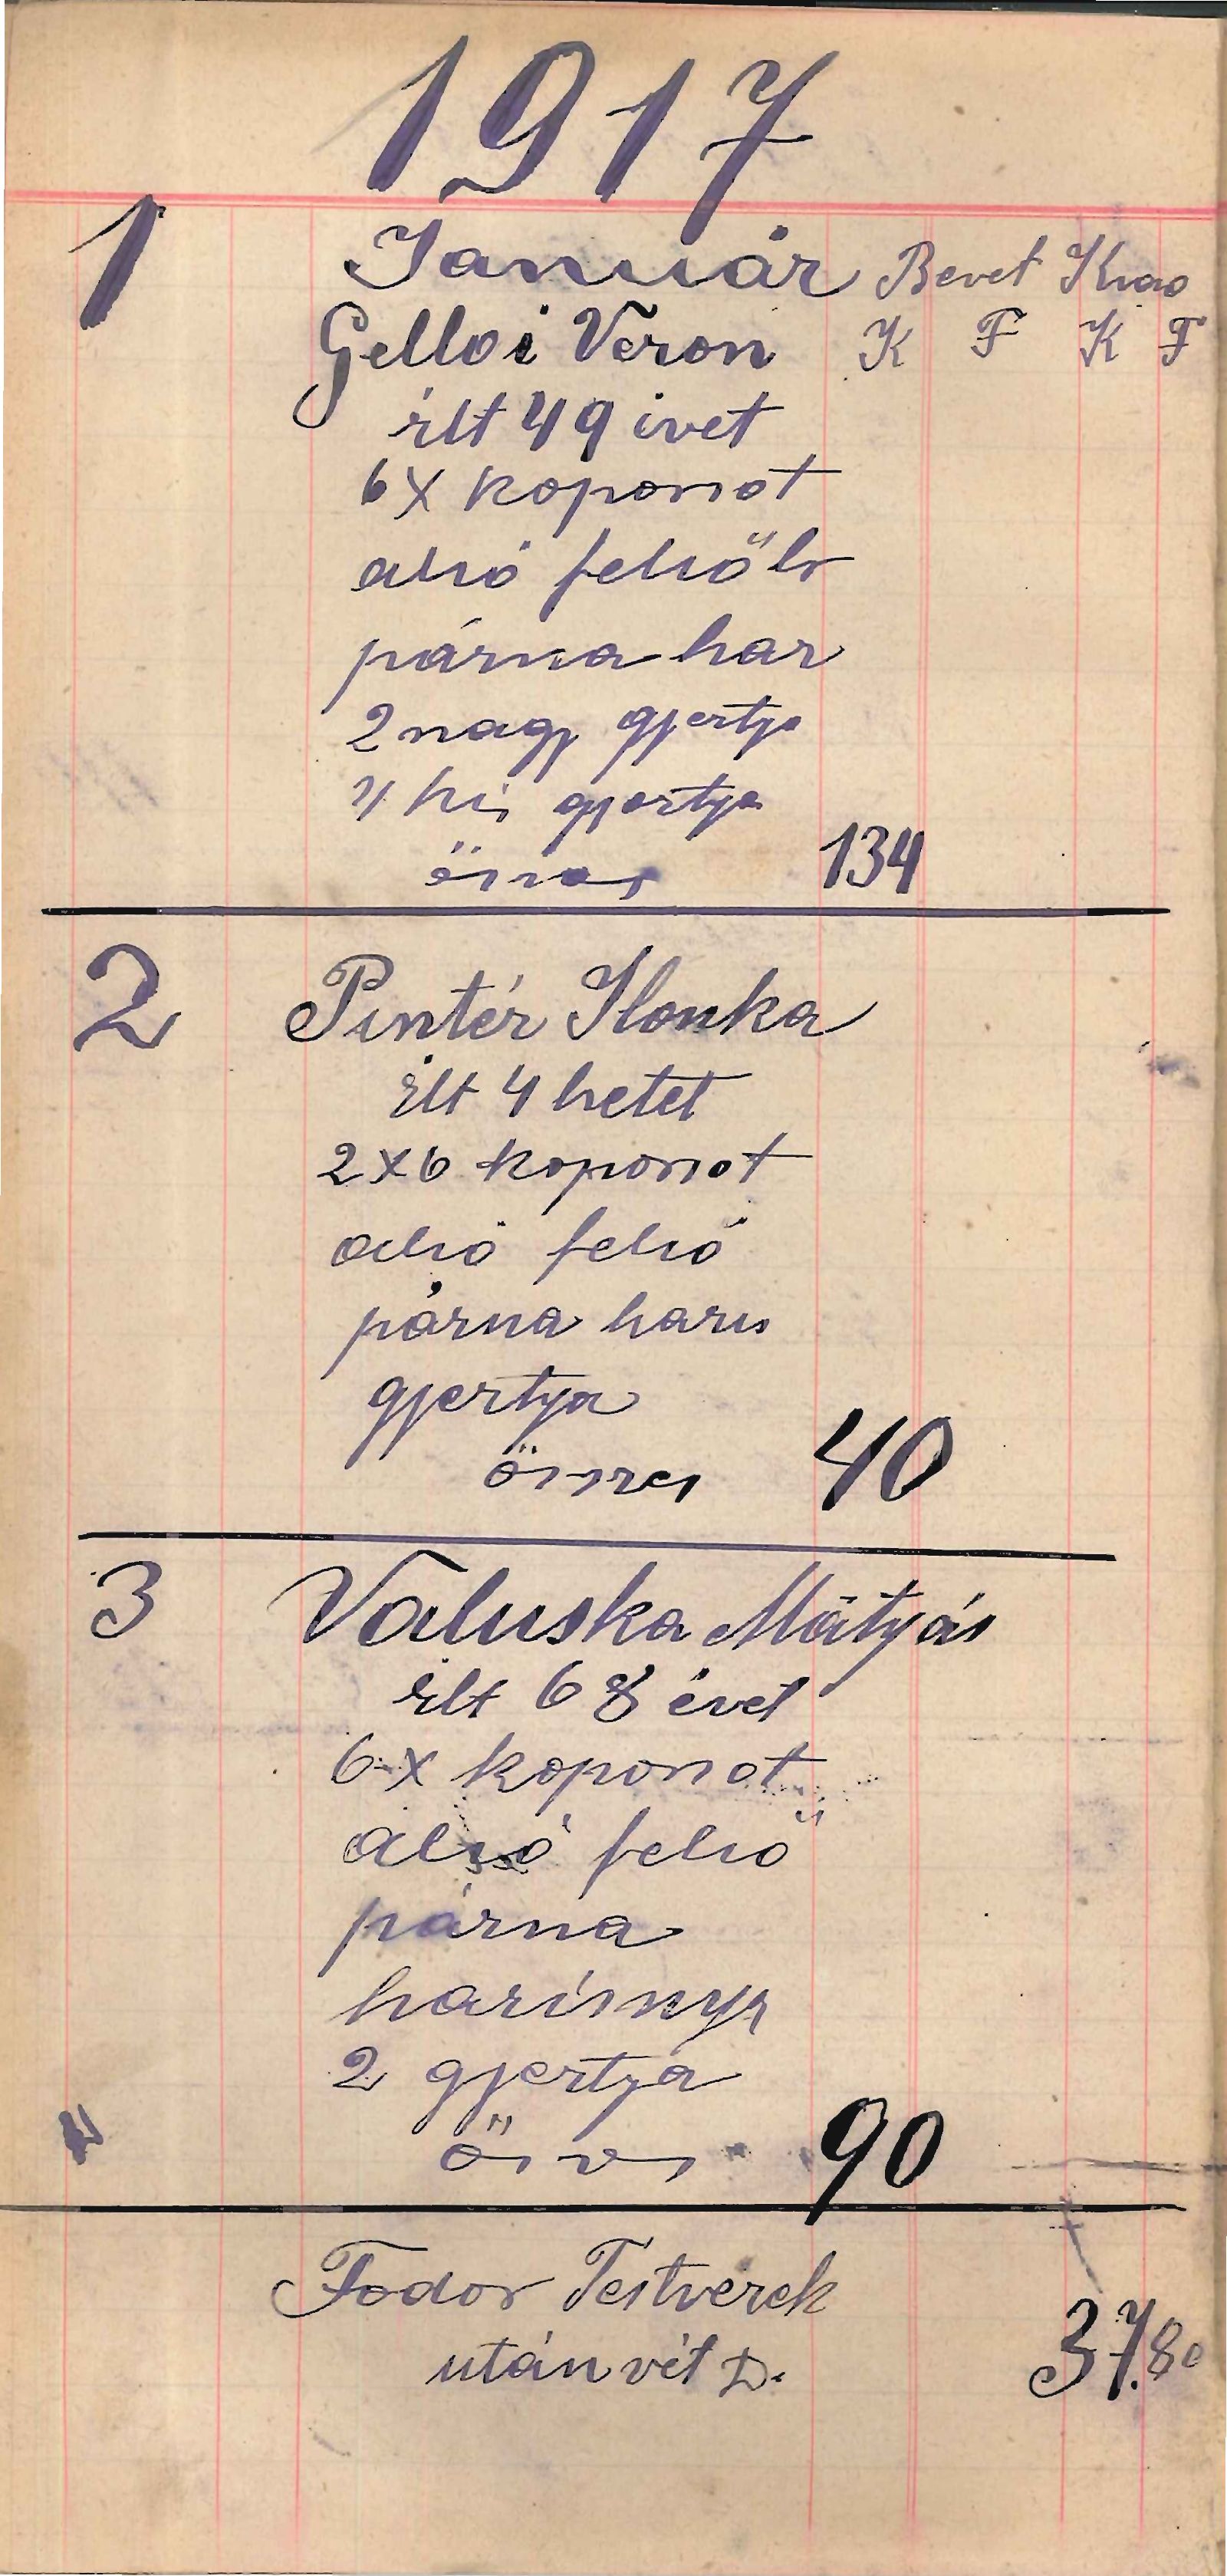 1917
1 Január Bevet Kiad
Gellei Veron K F K F
élt 49 ivet
6X koporsot
alsó felsőlv
párna har
2 nagy gjertja
4 kis gjertja
össes 134
2 Pintér Ilonka
élt 4 hetet
2X6 koporsot
alsó felsó
párna haris
gjertya
összes 40
3 Valuska Mátyás
élt 68 évet
6X koporsot
alsó felső
párna
harisnya
2 gjertya
össes 90
Fodor Testverek
után vét D. 37.80